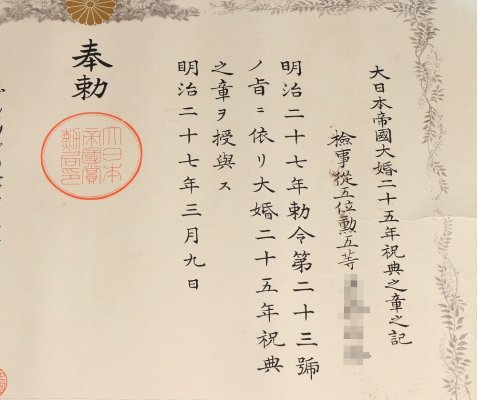 大日本帝國大婚二十五年祝典之章之記
檢事從五位勳五等
明治二十七年勅令第二十三號
ノ旨ニ依リ大婚二十五年祝典
之章ヲ授與ス
明治二十七年三月九日
奉勅
大日本
帝國賞
勳局印